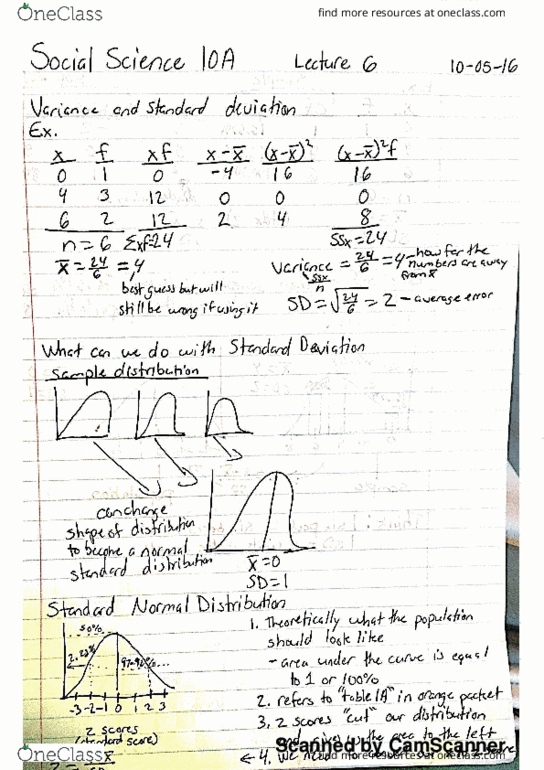 OneClass
find more resources at oneclass.com
Social Science 10A Lecture 6 10-05-16
Variance and standard deviation
Ex.
x f xf x-x̄ (x-x̄)² (x-x̄)²f
0 1 0 -4 16 16
4 3 12 0 0 0
6 2 12 2 4 8
n=6 Σxf=24 SSx=24
x̄ = 24/6 = 4
best guess but will
still be wrong if using it
Variance = 24/6 = 4 - how far the
numbers are away
from x̄
SSx/n
SD = √24/6 = 2 - average error
What can we do with Standard Deviation
sample distribution
can change
shape of distribution
to become a normal
standard distribution
x̄=0
SD=1
Standard Normal Distribution
50%
-3 -2 -1 0 1 2 3
z scores
(standard score)
1. Theoretically what the population
should look like
- area under the curve is equal
to 1 or 100%
2. refers to "table 1A" in orange packet
3. z scores "cut" our distribution
and gives the area to the left
4. we need
Scanned by CamScanner
OneClass
find more resources at oneclass.com